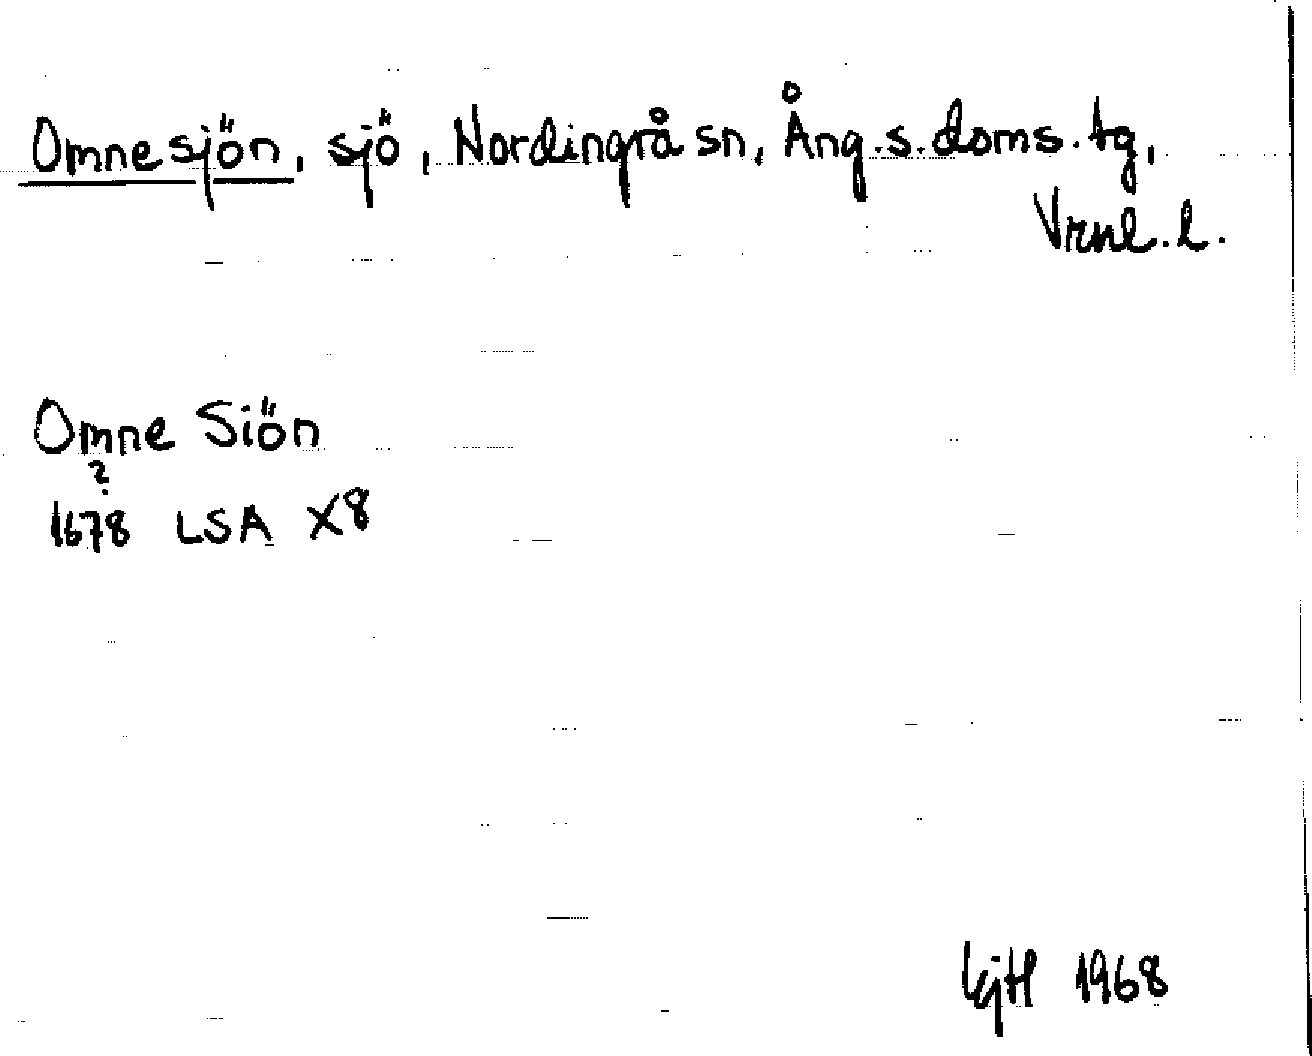 Omnesjön, sjö, Nordingrå sn, Ång.s.doms.tg,
Vrnl.l.
Omne Siön
?
1678 LSA X8
1968